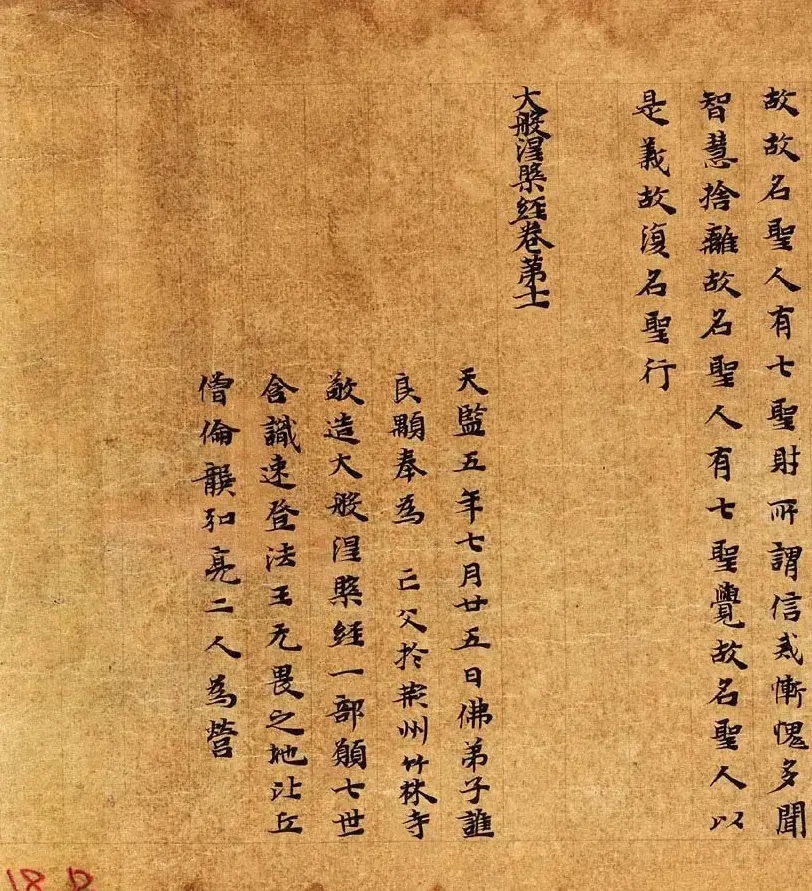 故故名聖人有七聖財所謂信戒慚愧多聞
智慧捨離故名聖人有七聖覺故名聖人以
是義故復名聖行
大般涅槃經卷第十一
天監五年七月廿五日佛弟子譙
良顒奉為 亡父於荊州竹林寺
敬造大般涅槃經一部願七世
含識速登法王无畏之地比丘
僧倫龔和亮二人為營